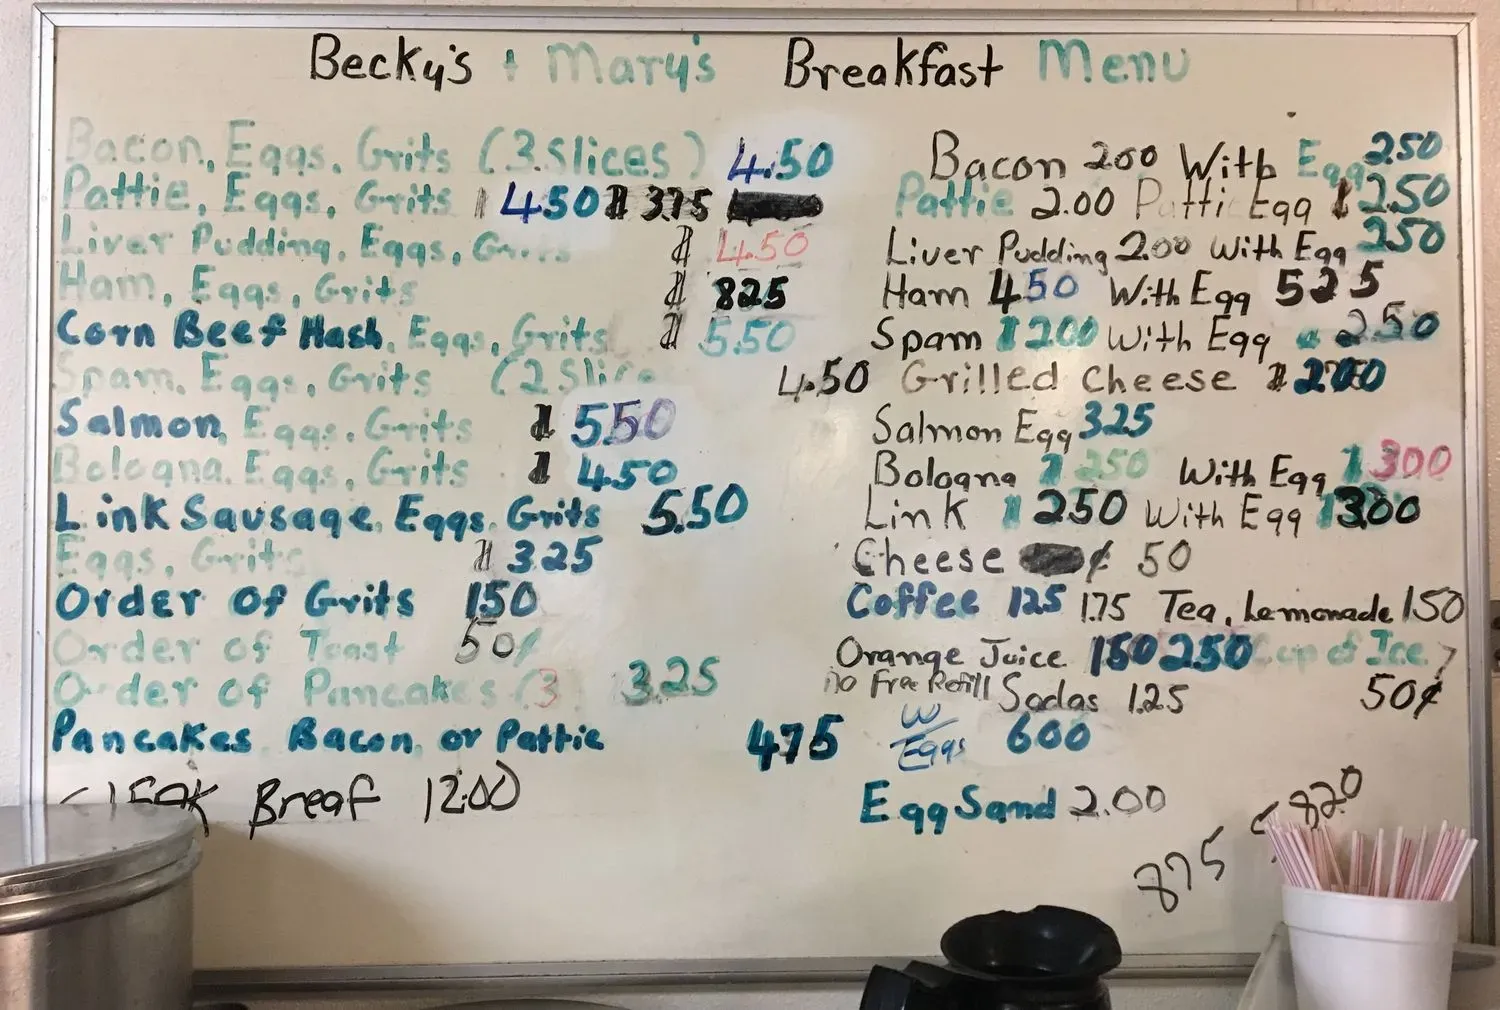 Becky's + Mary's Breakfast Menu
Bacon, Eggs, Grits (3 Slices) 4.50
Pattie, Eggs, Grits 4.50 3.75
Liver Pudding, Eggs, Grits $ 4.50
Ham, Eggs, Grits $ 825
Corn Beef Hash, Eggs, Grits $ 5.50
Spam, Eggs, Grits (2 Slice 4.50
Salmon, Eggs, Grits $ 5.50
Bologna, Eggs, Grits $ 4.50
Link Sausage, Eggs, Grits 5.50
Eggs, Grits $ 3.25
Order of Grits 150
Order of Toast 50¢
Order of Pancakes (3 3.25
Pancakes Bacon, or Pattie 475
Breaf 12.00
Bacon 200 With Egg 250
Pattie 2.00 Patti Egg $ 250
Liver Pudding 2.00 With Egg 250
Ham 450 With Egg 525
Spam $ 200 With Egg 250
Grilled Cheese $
Salmon Egg 325
Bologna $ 250 With Egg $ 300
Link $ 250 With Egg $ 300
Cheese ¢ 50
Coffee 125 1.75 Tea, Lemonade 150
Orange Juice 150 250 Cup of Ice
No Free Refill Sodas 1.25 50¢
W/Eggs 600
Egg Sand 2.00
820
875